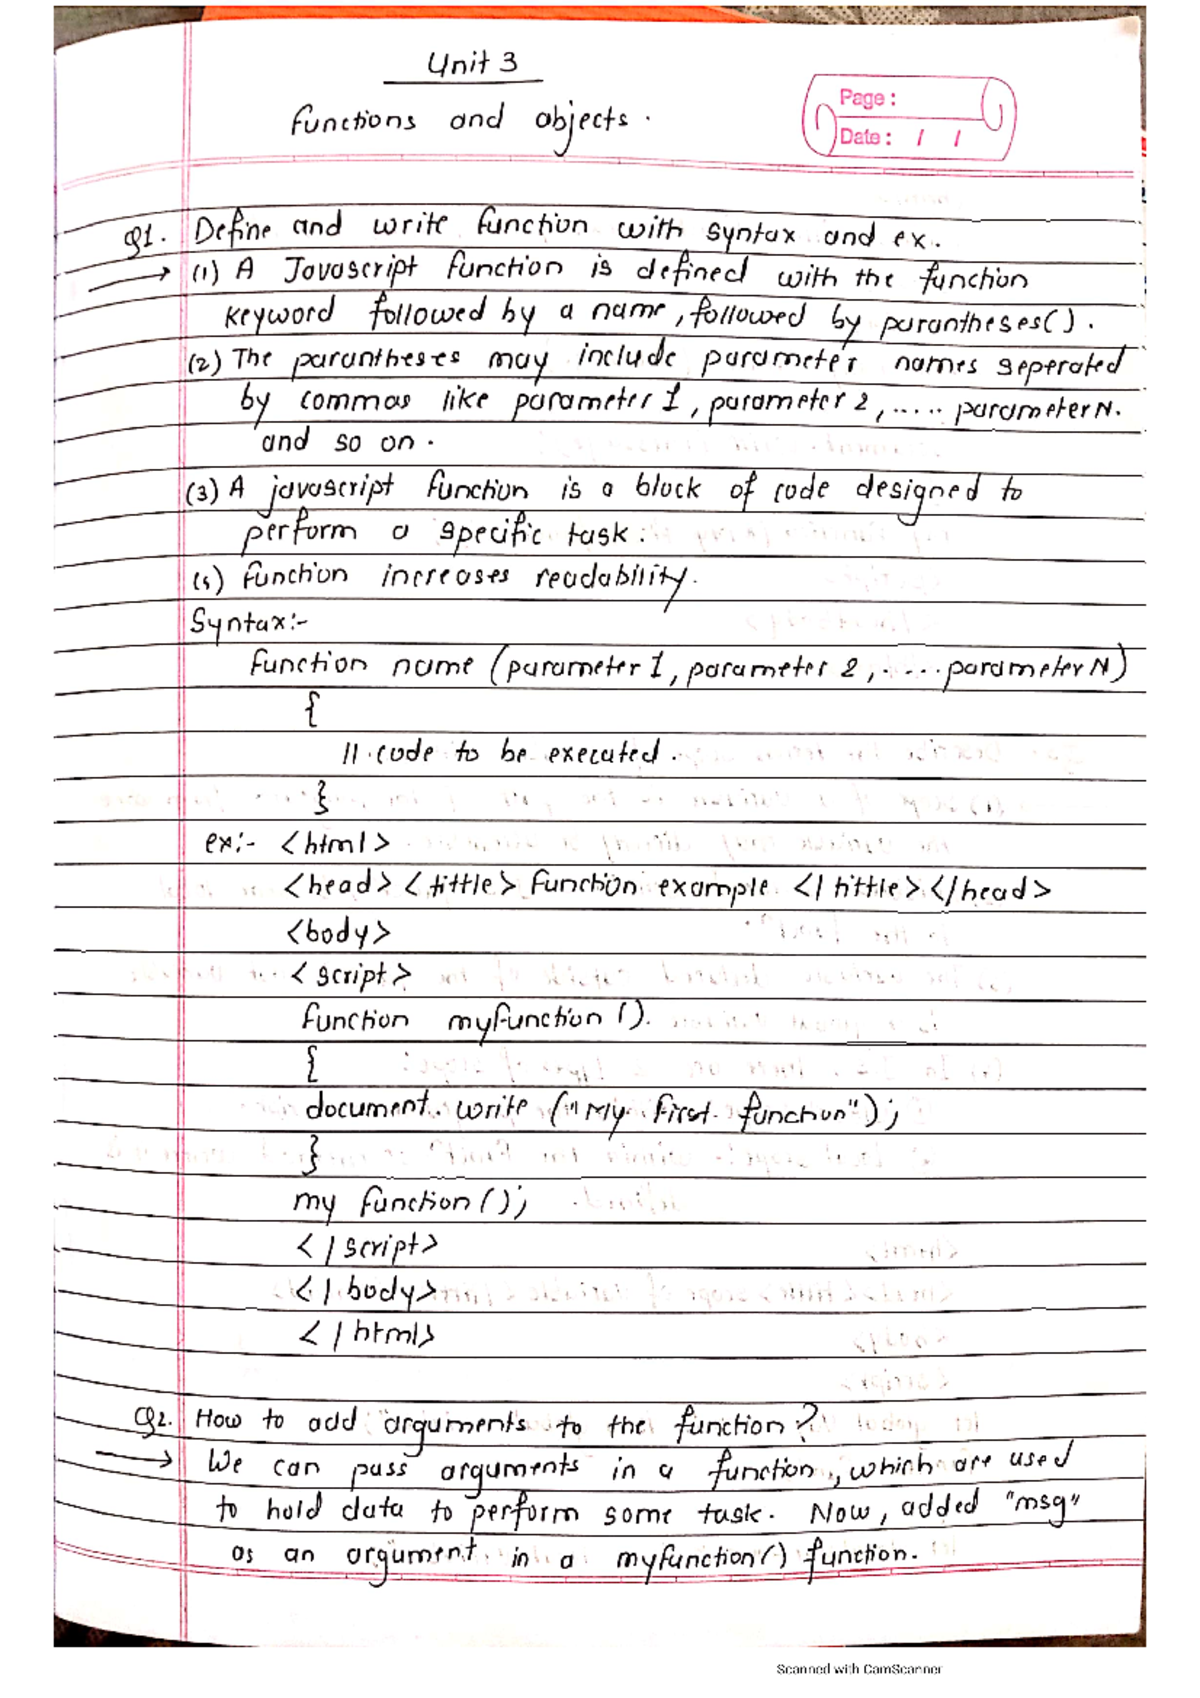 Unit 3
functions and objects.
Page :
Date : / /
Q1. Define and write function with syntax and ex.
→ (1) A Javascript function is defined with the function
keyword followed by a name, followed by parantheses().
(2) The parantheses may include parameter names seperated
by commas like parameter 1, parameter 2, ..... parameter N.
and so on.
(3) A javascript function is a block of code designed to
perform a specific task.
(4) function increases readability.
Syntax:-
function name (parameter 1, parameter 2, ..... parameter N)
{
// code to be executed.
}
ex:- <html>
<head> <tittle> function example </tittle></head>
<body>
<script>
function myfunction ().
{
document.write ("My first function");
}
my function ();
</script>
</body>
</html>
Q2. How to add arguments to the function?
→ We can pass arguments in a function, which are used
to hold data to perform some task. Now, added "msg"
as an argument in a myfunction() function.
Scanned with CamScanner